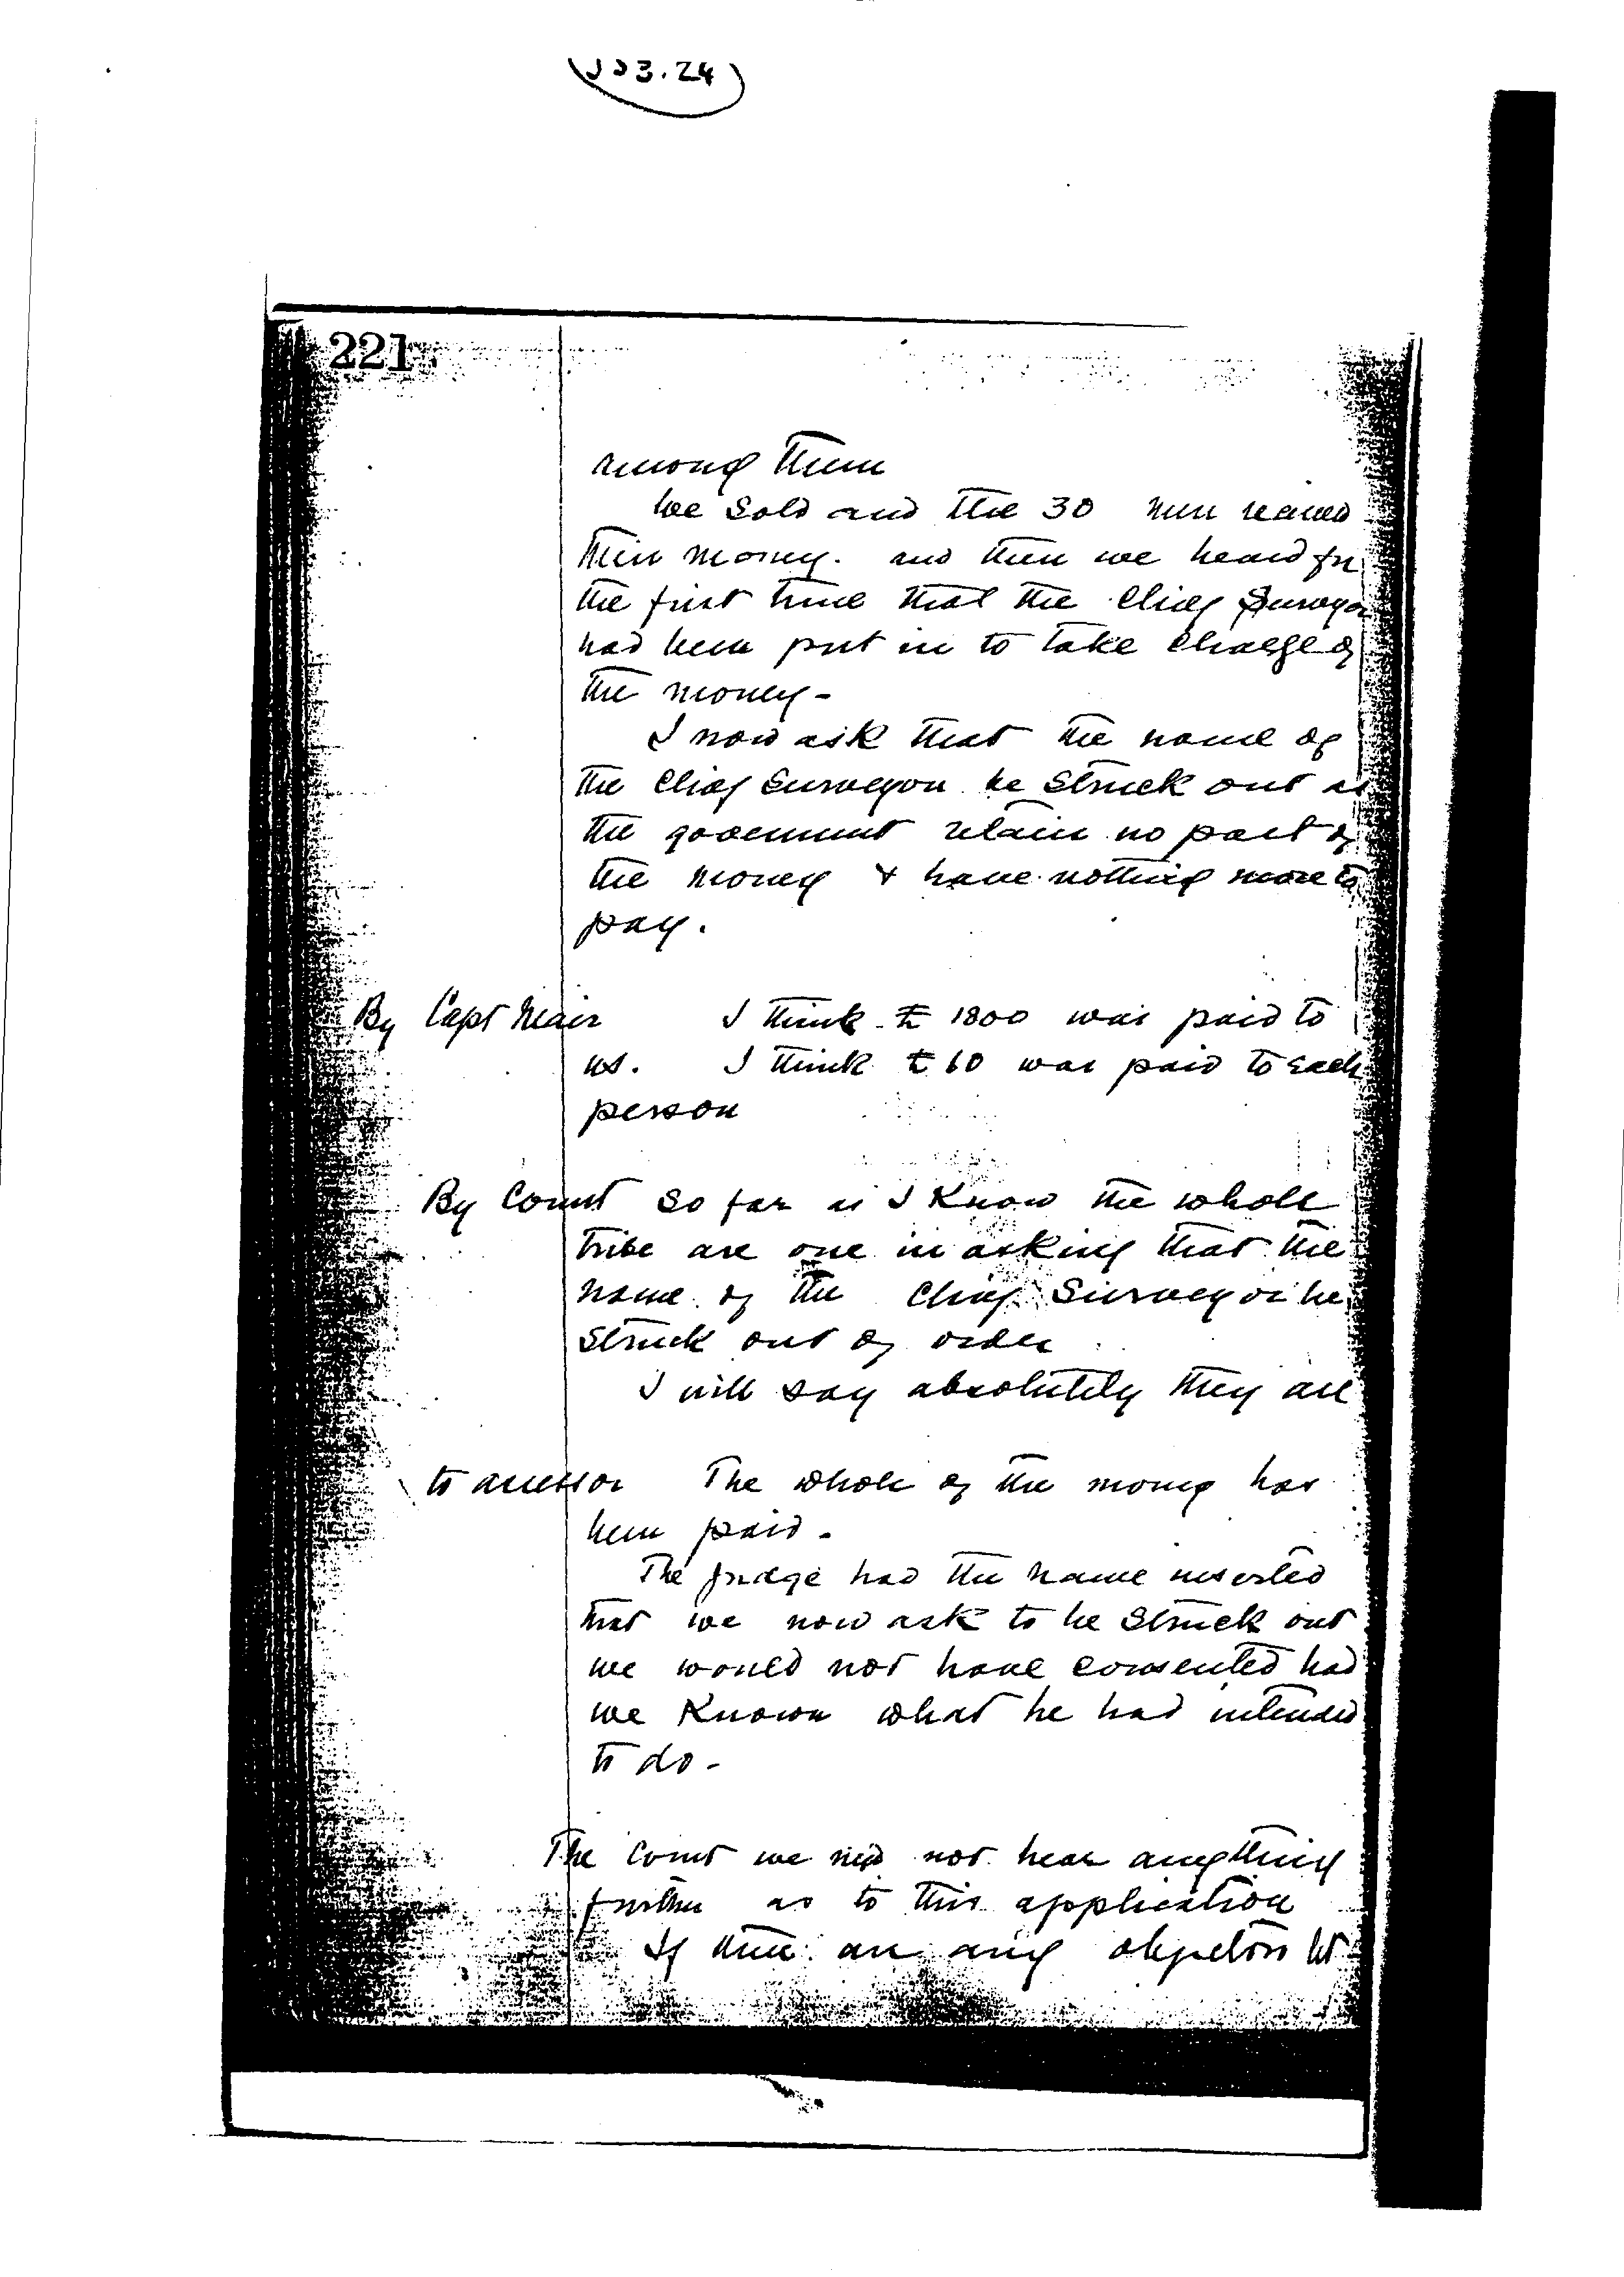 221
among them
We sold and the 30 men received
their money. and then we heard for
the first time that the Chief Surveyor
had been put in to take charge of
the money -
I now ask that the name of
the Chief Surveyor be struck out as
the government retain no part of
the money & have nothing more to
pay.
By Capt Mair I think £1800 was paid to
us. I think £60 was paid to each
person
By Court So far as I know the whole
tribe are one in asking that the
name of the Chief Surveyor be
struck out of order
I will say absolutely they are
to assessor The whole of the money has
been paid -
The judge had the name inserted
that we now ask to be struck out
we would not have consented had
we known what he had intended
to do -
The Court we need not hear anything
further as to this application
If there are any objectors let